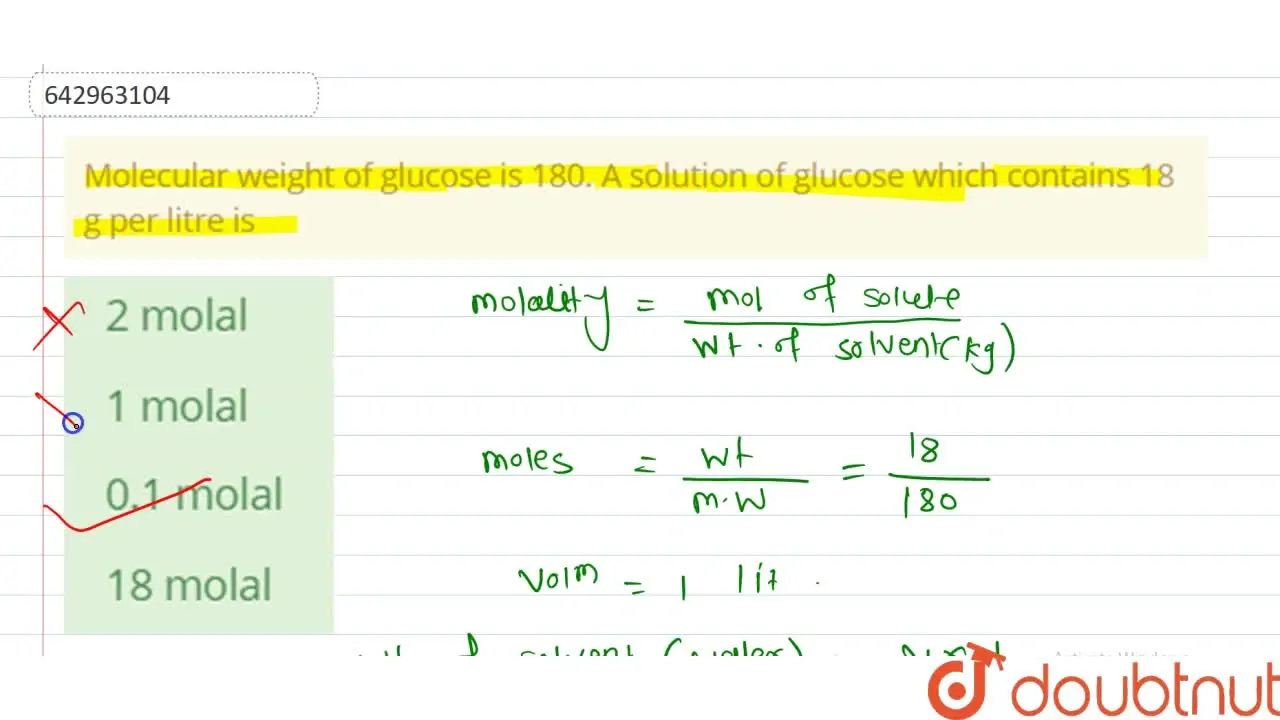 642963104
Molecular weight of glucose is 180. A solution of glucose which contains 18
g per litre is
2 molal
1 molal
0.1 molal
18 molal
molality = mol of solute
wt. of solvent (kg)
moles = wt = 18
m.w 180
Volm = 1 lit.
of solvent
doubtnut